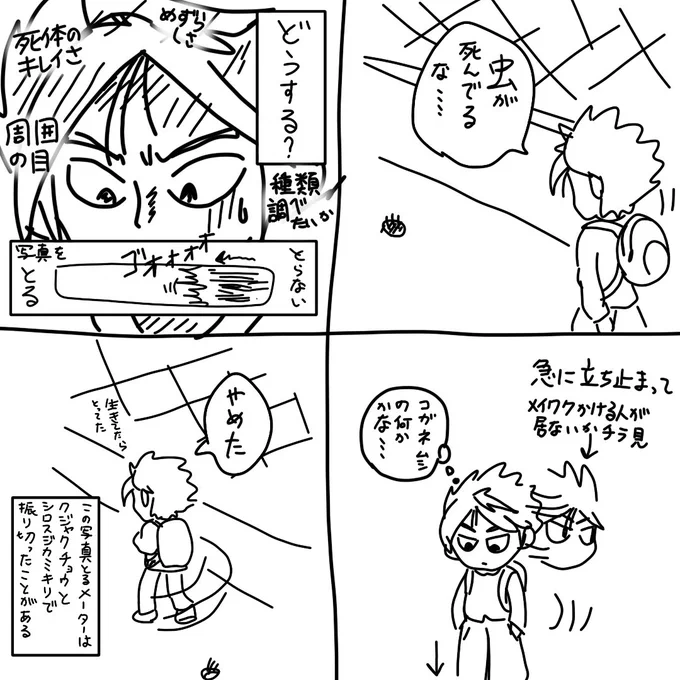 虫が
死んでる
な……
急に立ち止まって
メイワクかける人が
居ないかチラ見
コガネムシ
の何か
かな……
どうする?
めずらしさ
死体の
キレイさ
周囲
の目
種類
調べ
たいか
ゴオオオオ
写真を
とる
とらない
やめた
生きてたら
とってた
この写真とるメーターは
クジャクチョウと
シロスジカミキリで
振り切ったことがある